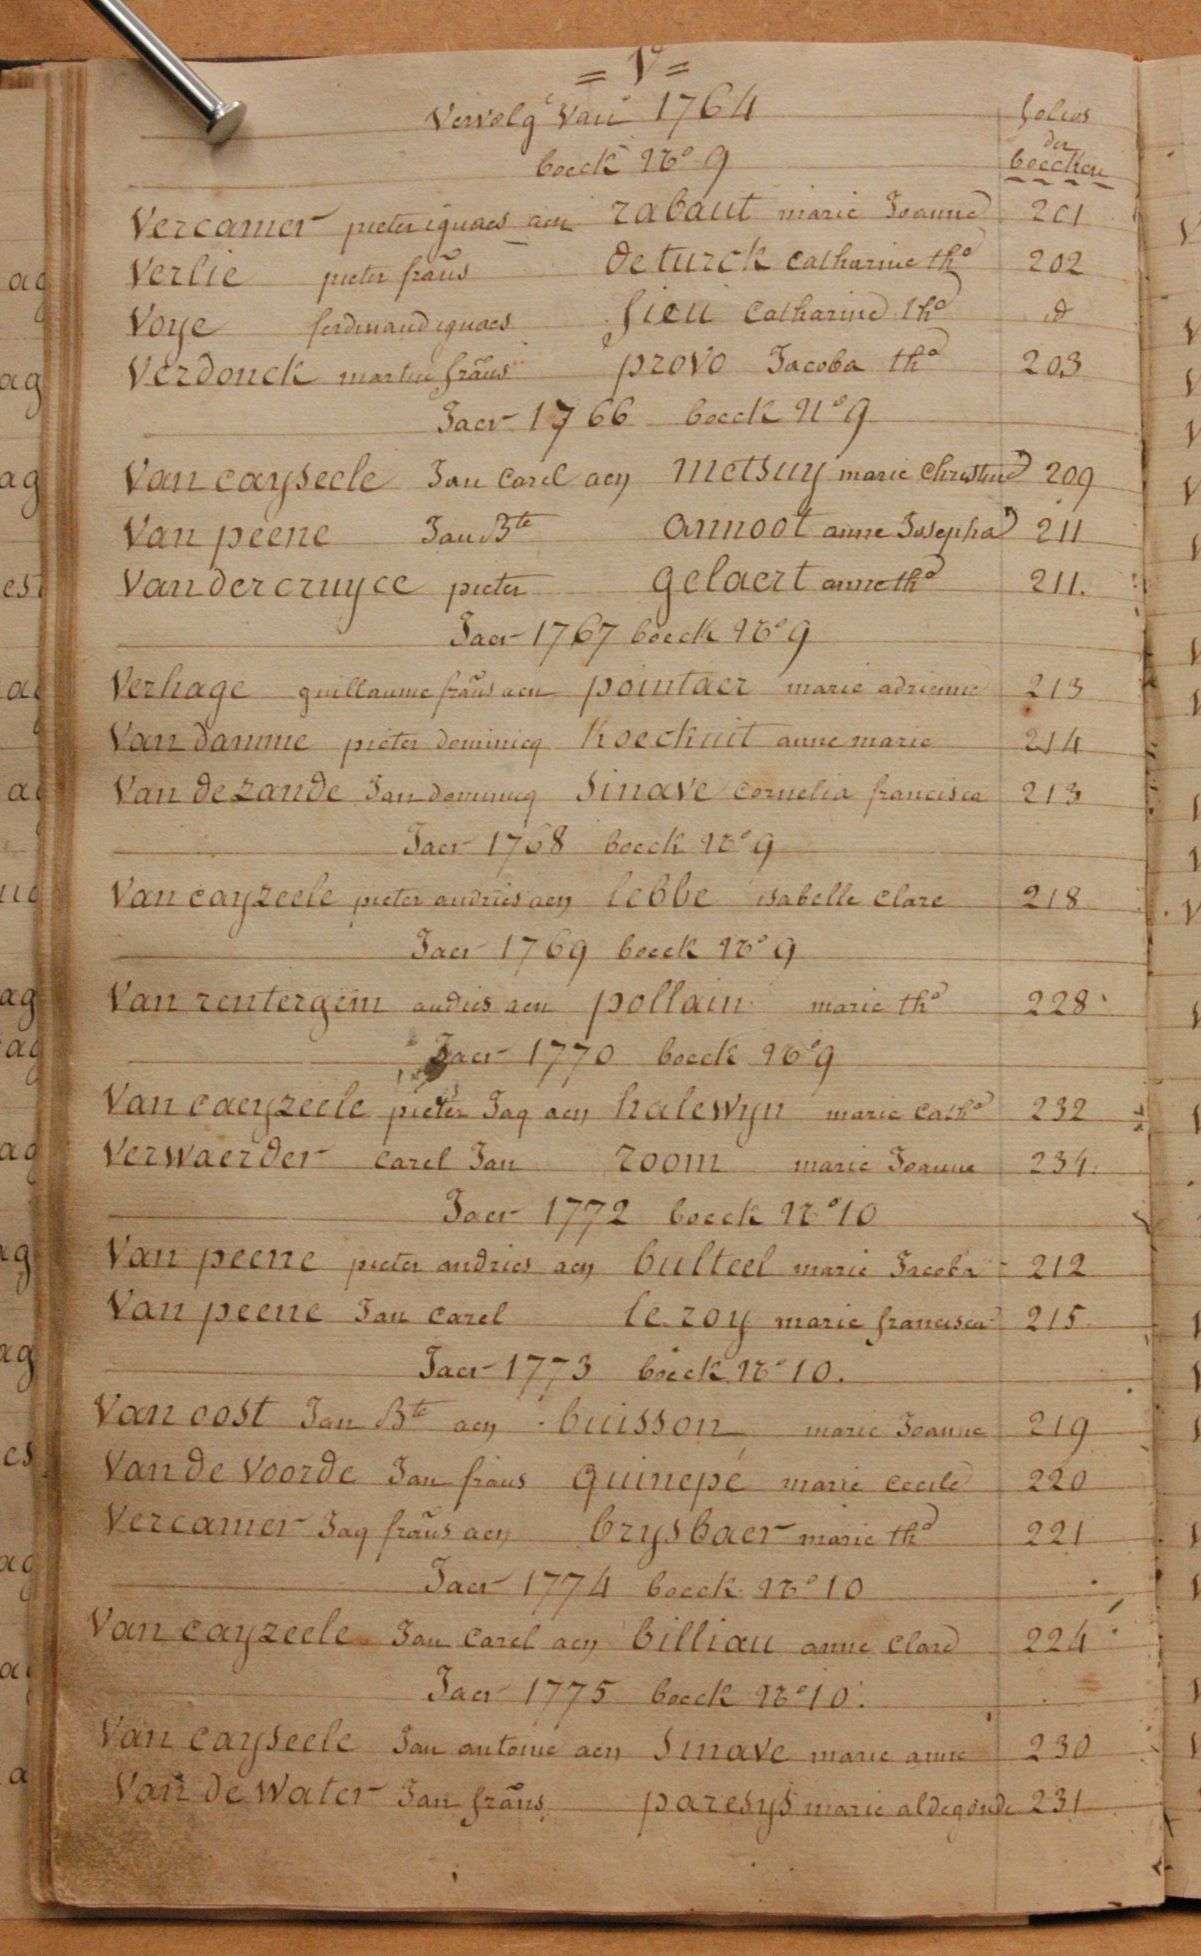 = V =
Vervolg van 1764
folios
boeck No 9
der
boecken
Vercamer pieter ignaes aen rabaut marie Joanne 201
Verlie pieter frans de turck catharine tha 202
Voye ferdinand ignaes sieu catharine tha id
Verdonck martin frans provo Jacoba tha 203
Jaer 1766 boeck No 9
Van cayseele Jan carel aen metsuy marie christine 209
Van peene Jan Bte annoot anne Josepha 211
Van der cruyce pieter gelaert anne tha 211.
Jaer 1767 boeck No 9
Verhage guillaume frans aen pointaer marie adrienne 213
Van damme pieter dominicq Koeckuit anne marie 214
Van de zande Jan dominicq sinave cornelia francisca 213
Jaer 1768 boeck No 9
Van cayzeele pieter andries aen lebbe isabelle clare 218
Jaer 1769 boeck No 9
Van rentergem andries aen pollain marie tha 228
Jaer 1770 boeck No 9
Van caeyzeele pieter Jaq aen halewyn marie catha 232
Verwaerder carel Jan room marie Joanne 234.
Jaer 1772 boeck No 10
Van peene pieter andries aen bulteel marie Jacoba 212
Van peene Jan carel le roy marie francisca 215
Jaer 1773 boeck No 10.
Van oost Jan Bte aen buisson marie Joanne 219
Van de Voorde Jan frans quinepé marie cecile 220
Vercamer Jaq frans aen brysbaer marie tha 221
Jaer 1774 boeck No 10
Van cayzeele Jan carel aen billiau anne clare 224
Jaer 1775 boeck No 10.
Van cayseele Jan antoine aen sinave marie anne 230
Van de water Jan frans paresys marie aldegonde 231